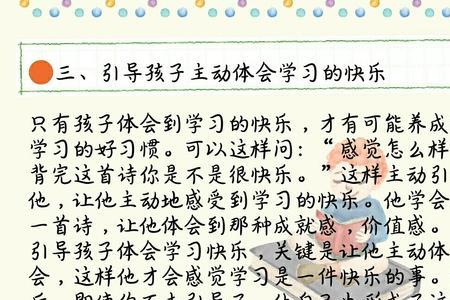 三、引导孩子主动体会学习的快乐
只有孩子体会到学习的快乐，才有可能养成
学习的好习惯。可以这样问：“感觉怎么样
背完这首诗你是不是很快乐。”这样主动引
他，让他主动地感受到学习的快乐。他学会
一首诗，让他体会到那种成就感、价值感。
引导孩子体会学习快乐，关键是让他主动体
会，这样他才会感觉学习是一件快乐的事。